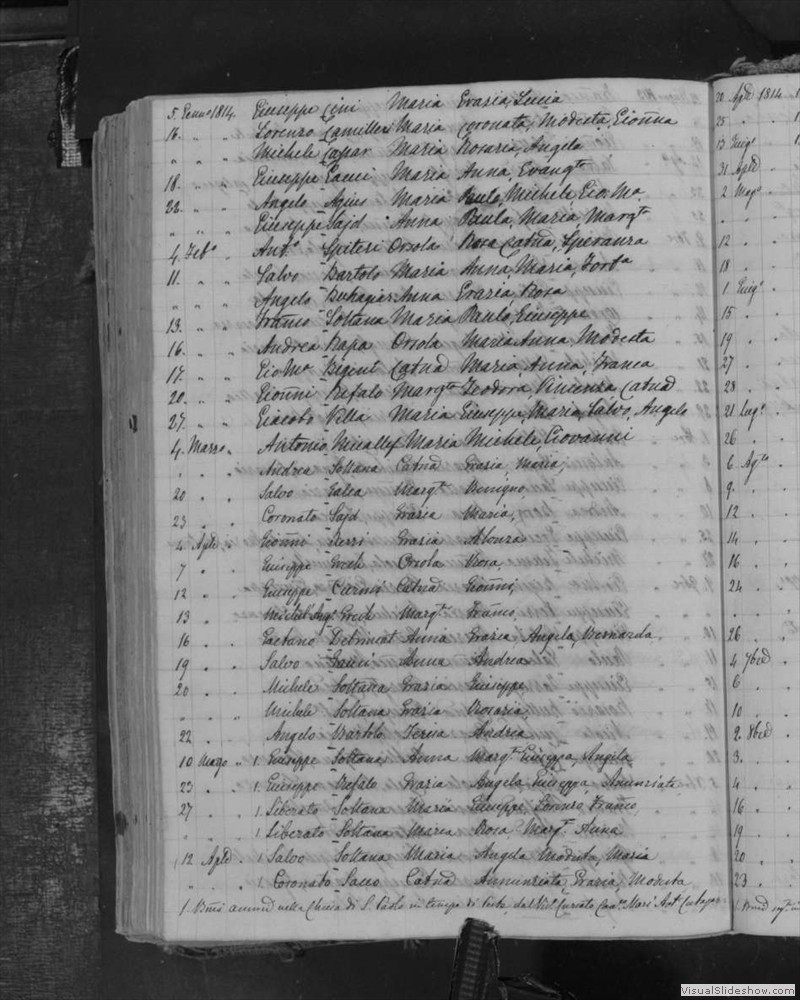 5. Genno 1814. Giuseppe Cini Maria Grazia, Lucia
16. " " Lorenzo Camilleri Maria Coronata, Modesta, Gionna
" " " Michele Caxar Maria Rosaria, Angela
18. " " Giuseppe Gauci Maria Anna, Evangta
22. " " Angelo Agius Maria Paulo, Michele, Gio. Ma.
" " " Giuseppe Sajd Anna Paula, Maria, Margta
4. Feb. " Anto. Spiteri Orsola Rosa Catna, Speranza
11. " " Salvo Bartolo Maria Anna, Maria, Forta
" " " Angelo Buhagiar Anna Grazia, Rosa
13. " " Franco Soltana Maria Paulo, Giuseppe
16. " " Andrea Bapa Orsola Maria Anna, Modesta
17. " " Gio Ma Catna Maria, Anna, Franca
20. " " Gionni Refalo Margta Teodora, Vincenza Catna
27. " " Giacobo Villa Maria Giuseppe, Maria, Salvo, Angelo
4. Marzo " Antonio Micallef Maria Michele, Giovanni
" " " Andrea Soltana Catna Grazia, Maria,
20 " " Salvo Galea Margta Benigno,
23 " " Coronato Sajd Grazia Maria,
4 Aple " Gionni Grazia Alonza
7 " " Giuseppe Grech Orsola Rosa,
12 " " Giuseppe Catna Gionni,
13 " " Michel Ang. Grech Margta Franco,
16 " " Gaetano Anna Grazia, Angela, Bernarda
19 " " Salvo Gauci Anna Andrea
20 " " Michele Soltana Grazia Giuseppe,
" " " Michele Soltana Grazia Rosaria,
22 " " Angelo Bartolo Teresa Andrea
10 Mago " 1. Giuseppe Soltana Anna Margta Giuseppa, Angela
23 " " 1. Giuseppe Refalo Grazia Angela, Giuseppa, Anunziata
27 " " 1. Liberato Soltana Maria Giuseppe, Lorenzo, Franco
" " " 1. Liberato Soltana Maria Rosa Margta Anna
12 Aple " 1. Salvo Soltana Maria Angela, Modesta, Maria
" " " 1. Coronato Sacco Catna Annunziata, Grazia, Modesta
1. nella Chiesa di S. Paolo in tempo di
20 Aple 1814
25 " "
13 Giugo
31 Aple
2 Mago
" "
12 "
18 "
1 Giugo
15 "
19 "
27 "
28 "
21 Lugo
26 "
6 Agto
9. "
12 "
14 "
16 "
24 "
" "
26 "
4 7bre
6 "
10 "
2. 8bre
3. "
4 "
16 "
19 "
20 "
23 "
VisualSlideshow.com